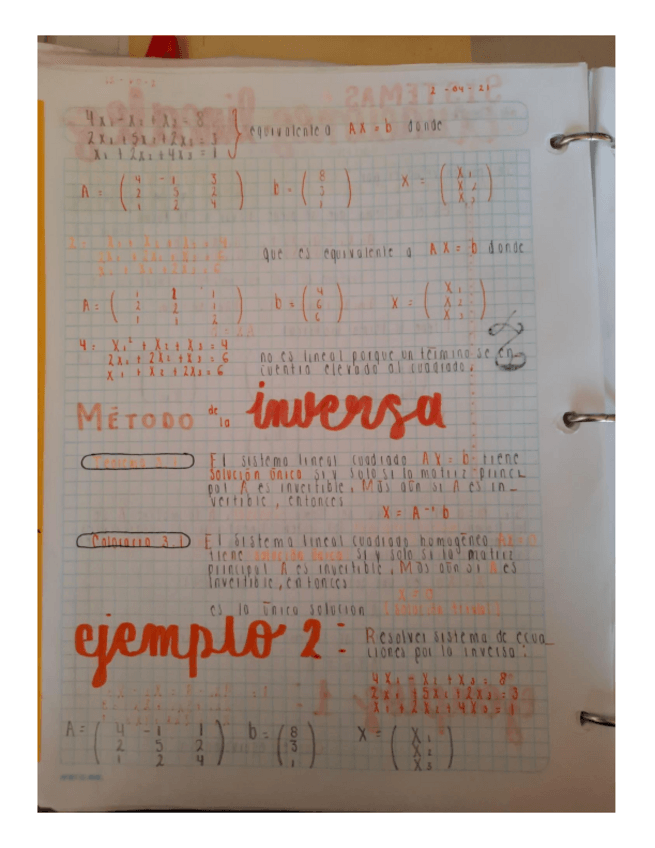 2 - 04 - 21
4x₁ - x₂ + x₃ = 8
2x₁ + 5x₂ + 2x₃ = 3
x₁ + 2x₂ + 4x₃ = 1
equivalente a AX = b donde
A = ( 4 -1 3 ) b = ( 8 ) X = ( X₁ )
2 5 2 3 X₂
1 2 4 1 X₃
2: X₁ + X₂ + X₃ = 4
que es equivalente a AX = b donde
A = ( 1 1 1 ) b = ( 4 ) X = ( X₁ )
2 2 1 6 X₂
1 1 2 6 X₃
4: X₁² + X₂ + X₃ = 4
2X₁ + 2X₂ + X₃ = 6
X₁ + X₂ + 2X₃ = 6
no es lineal porque un término se en_
cuentra elevado al cuadrado.
MÉTODO de la inversa
Teorema 3.1
El sistema lineal cuadrado AX = b tiene
solución única si y solo si la matriz princi
pal A es invertible, Mas aún si A es in_
vertible, entonces
X = A⁻¹ b
Colorario 3.1
El sistema lineal cuadrado homogéneo AX = 0
tiene solución única si y solo si la matriz
principal A es invertible, Mas aún si A es
invertible, entonces
X = 0
es la única solución
ejemplo 2:
Resolver sistema de ecua_
ciones por la inversa:
4X₁ - X₂ + X₃ = 8
2X₁ + 5X₂ + 2X₃ = 3
X₁ + 2X₂ + 4X₃ = 1
A = ( 4 -1 1 ) b = ( 8 ) X = ( X₁ )
2 5 2 3 X₂
1 2 4 1 X₃